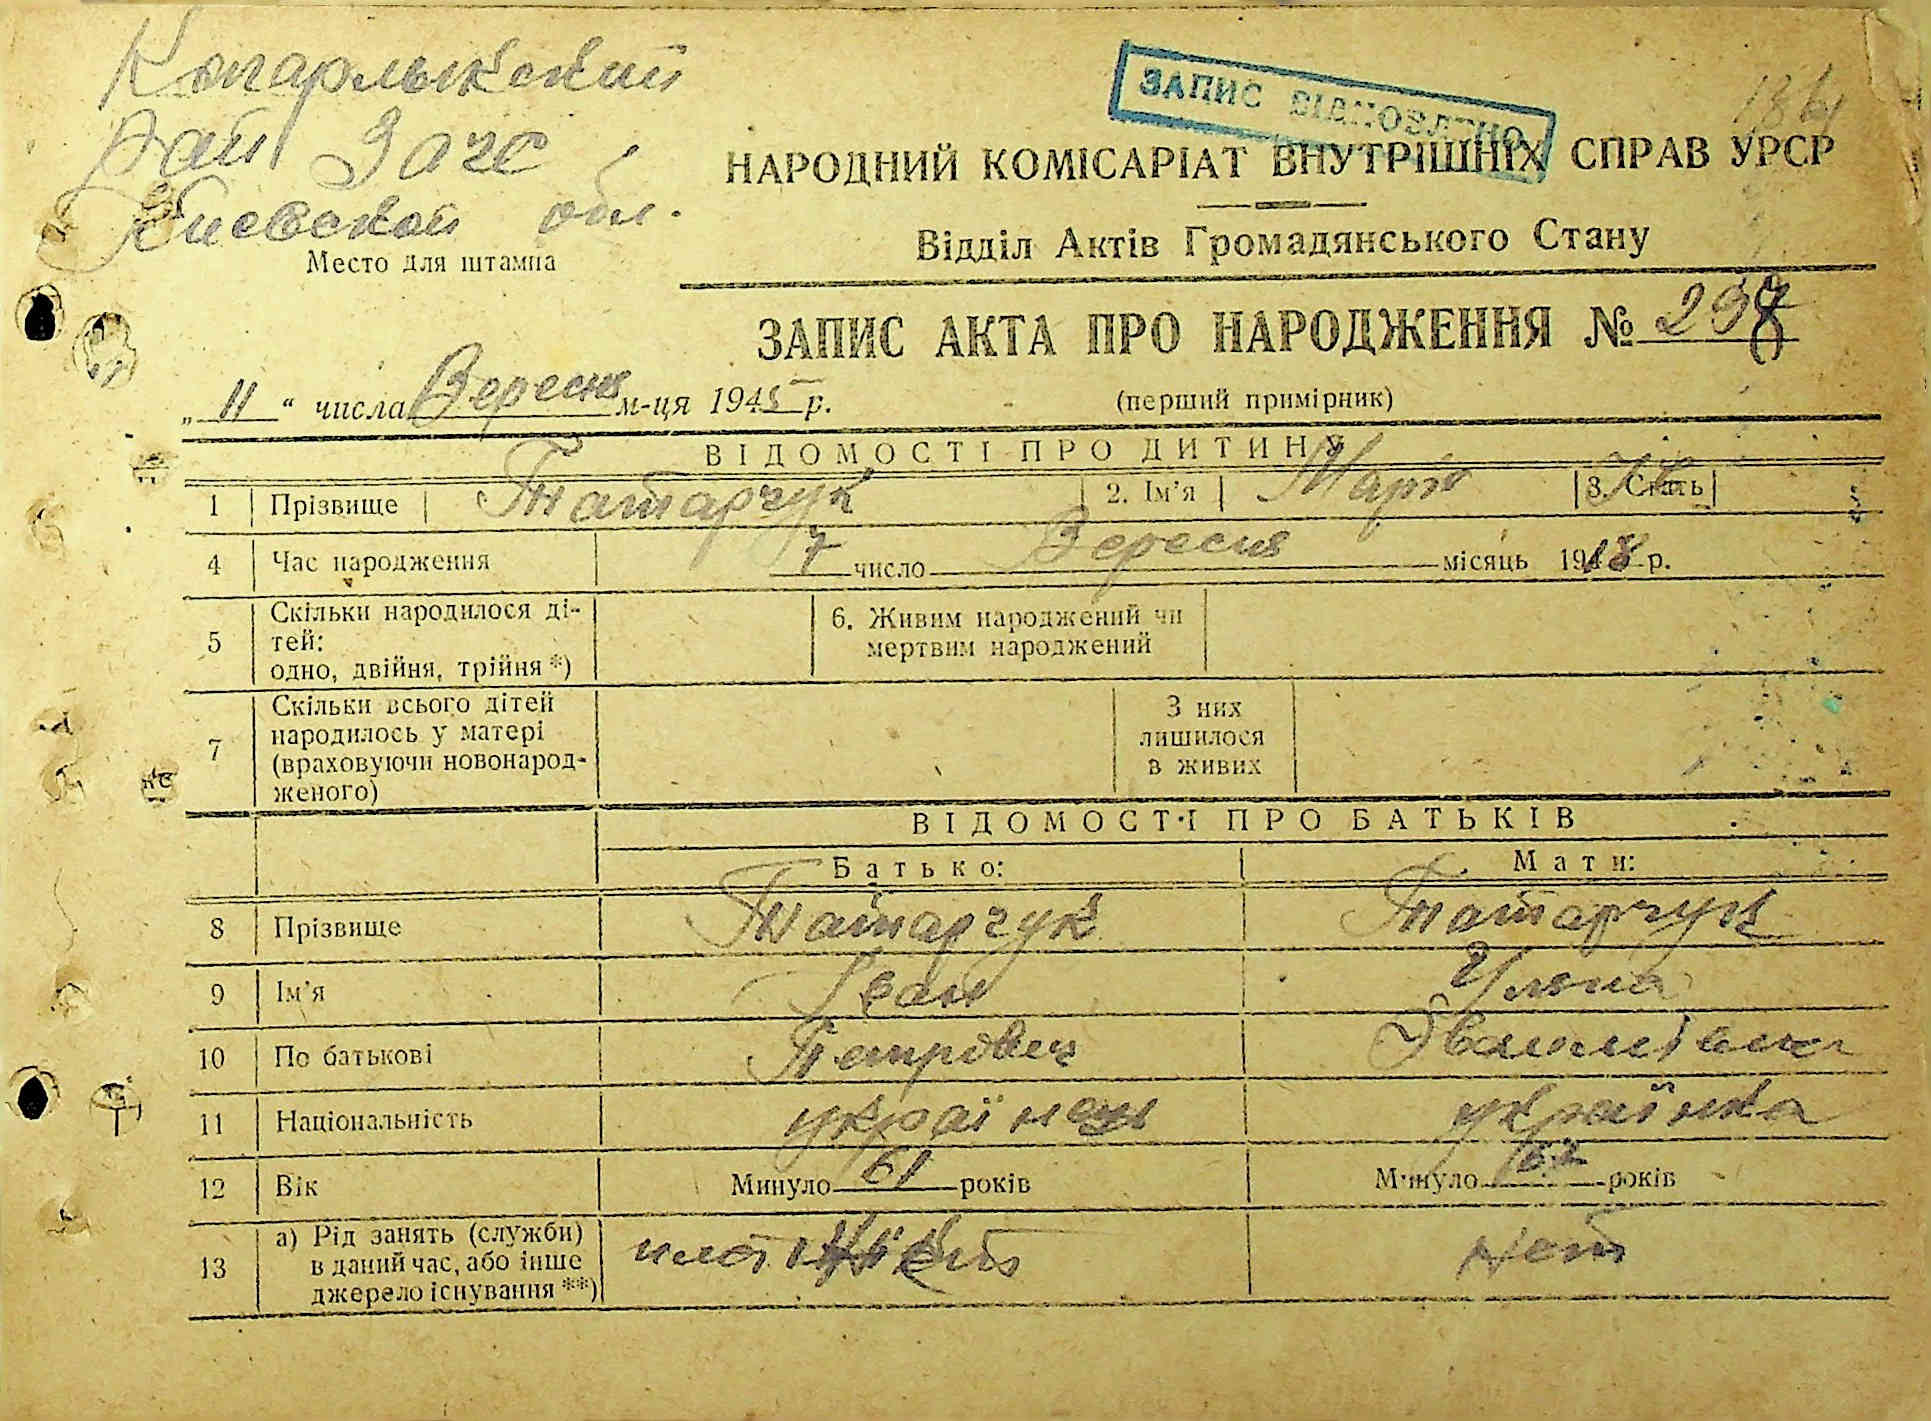 Кагарлыкский
рай Загс
Киевской обл.
Место для штампа
ЗАПИС ВІДНОВЛЕНО
НАРОДНИЙ КОМІСАРІАТ ВНУТРІШНІХ СПРАВ УРСР
Відділ Актів Громадянського Стану
ЗАПИС АКТА ПРО НАРОДЖЕННЯ №
„ 11 “ числа Вересня м-ця 1945 р.
(перший примірник)
ВІДОМОСТІ ПРО ДИТИНУ
1 Прізвище Татарчук 2. Ім’я Марія 3. Стать
4 Час народження 7 число Вересня місяць 1918 р.
5 Скільки народилося ді-
тей:
одно, двійня, трійня *)
6. Живим народжений чи
мертвим народжений
7 Скільки всього дітей
народилось у матері
(враховуючи новонарод-
женого)
З них
лишилося
в живих
ВІДОМОСТІ ПРО БАТЬКІВ
Батько: Мати:
8 Прізвище Татарчук Татарчук
9 Ім’я Іван Уляна
10 По батькові Петрович
11 Національність українець українка
12 Вік Минуло 61 років Минуло років
13 а) Рід занять (служби)
в даний час, або інше
джерело існування **)
нет